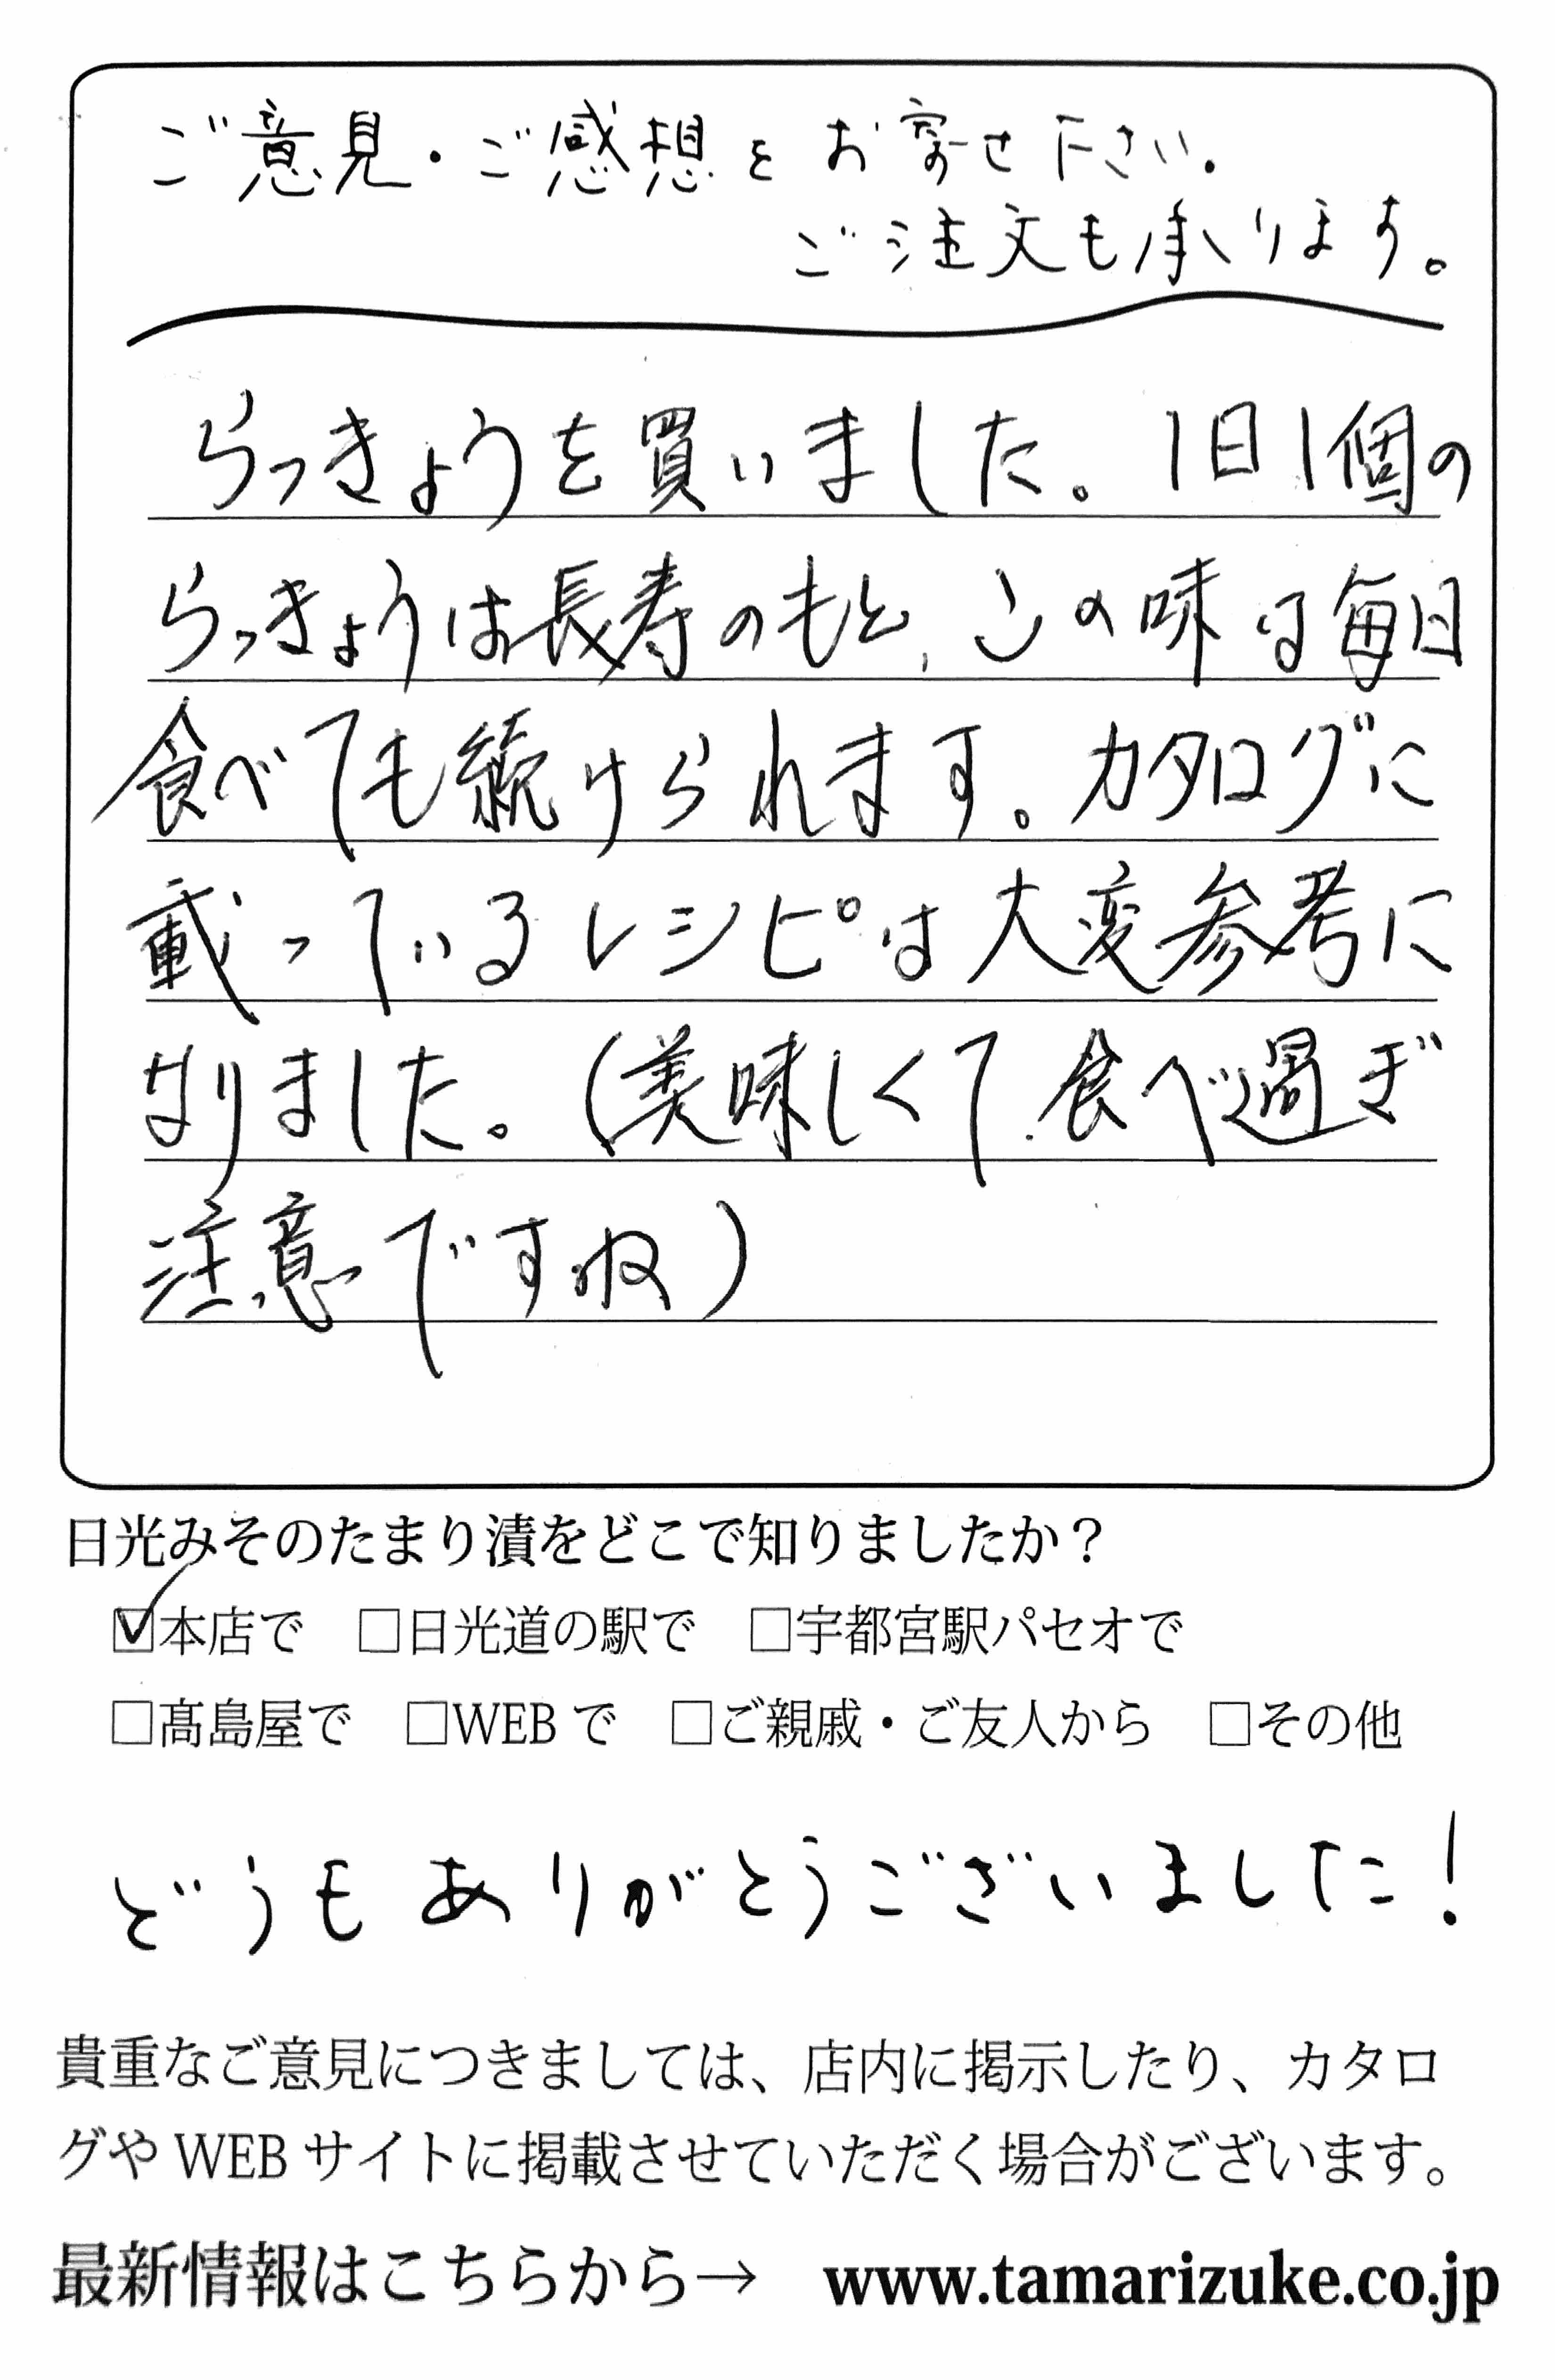 ご意見・ご感想をお寄せ下さい。
ご注文も承ります。
らっきょうを買いました。1日1個の
らっきょうは長寿のもと、この味は毎日
食べても続けられます。カタログに
載っているレシピは大変参考に
なりました。(美味しくて食べ過ぎ
注意ですね)
日光みそのたまり漬をどこで知りましたか？
☑本店で □日光道の駅で □宇都宮駅パセオで
□髙島屋で □WEBで □ご親戚・ご友人から □その他
どうもありがとうございました！
貴重なご意見につきましては、店内に掲示したり、カタロ
グやWEBサイトに掲載させていただく場合がございます。
最新情報はこちらから→ www.tamarizuke.co.jp